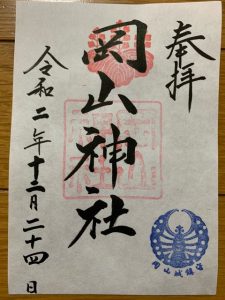 奉拝
岡山神社
令和二年十二月二十四日
岡山城鎮守